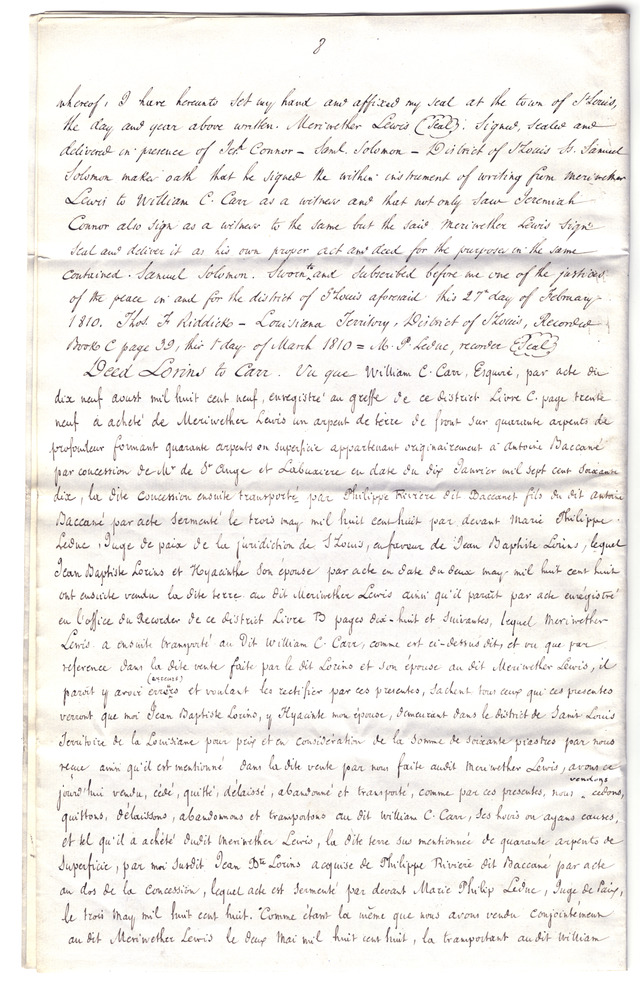 8
whereof, I have hereunto set my hand and affixed my seal at the town of St Louis,
the day and year above written. Meriwether Lewis (Seal). Signed, sealed and
delivered in presence of Jerh Connor – Saml. Solomon – District of St Louis Ss. Samuel
Solomon makes oath that he signed the within instrument of writing from Meriwether
Lewis to William C. Carr as a witness and that not only saw Jeremiah
Connor also sign as a witness to the same but the said Meriwether Lewis sign
seal and deliver it as his own proper act and deed for the purposes in the same
contained. Samuel Solomon. Sworn to and subscribed before me one of the justices
of the peace in and for the district of St Louis aforesaid this 27th day of February
1810. Thos. F. Riddick – Louisiana Territory, District of St Louis, Recorded
Book C page 39, this 1st day of March 1810 = M. P. Leduc, recorder (Seal)
Deed Lorins to Carr. Vu que William C. Carr, Esquire, par acte du
dix neuf aoust mil huit cent neuf, enregistré au greffe de ce district Livre C. page trente
neuf a acheté de Meriwether Lewis un arpent de terre de front sur quarante arpents de
profondeur formant quarante arpents en superficie appartenant originairement à Antoine Baccané
par concession de Mr de St Ange et Labuxiere en date du dix Janvier mil sept cent soixante
dix, la dite concession ensuite transporté par Philippe Riviere dit Baccanet fils du dit Antoine
Baccané par acte sermenté le trois may mil huit cent huit par devant Marie Philippe
Leduc, Juge de paix de la juridiction de St Louis, en faveur de Jean Baptiste Lorins, lequel
Jean Baptiste Lorins et Hyacinthe son épouse par acte en date du deux may mil huit cent huit
ont ensuite vendu la dite terre au dit Meriwether Lewis ainsi qu'il parait par acte enrégistré
en l'office du Recorder de ce district Livre B pages dix-huit et suivantes, lequel Meriwether
Lewis a ensuite transporté au Dit William C. Carr, comme est ci-dessus dit, et vu que par
réference dans la dite vente faite par le dit Lorins et son épouse au dit Meriwether Lewis, il
(erreurs)
paroit y avoir errüs et voulant les rectifier par ces presentes, sachent tous ceux qui ces presentes
verront que moi Jean Baptiste Lorins, y Hyacinte mon épouse, demeurant dans le district de Saint Louis
Territoire de la Louisiane pour prix et en considération de la somme de soixante piastres par nous
reçue ainsi qu'il est mentionné dans la dite vente par nous faite audit Meriwether Lewis, avons ce
vendons
jourd'hui vendu, cédé, quitté, délaissé, abandonné et transporté, comme par ces presentes, nous cedons,
quittons, délaissons, abandonnons et transportons au dit William C. Carr, ses hoirs ou ayans causes,
et tel qu'il a achété dudit Meriwether Lewis, la dite terre sus mentionnée de quarante arpents de
Superficie, par moi susdit Jean Bte Lorins acquise de Philippe Riviere dit Baccané par acte
au dos de la concession, lequel acte est sermenté par devant Marie Philip Leduc, Juge de Paix,
le trois May mil huit cent huit. Comme étant la même que nous avons vendu conjointement
au dit Meriwether Lewis le deux Mai mil huit cent huit, la transportant au dit William